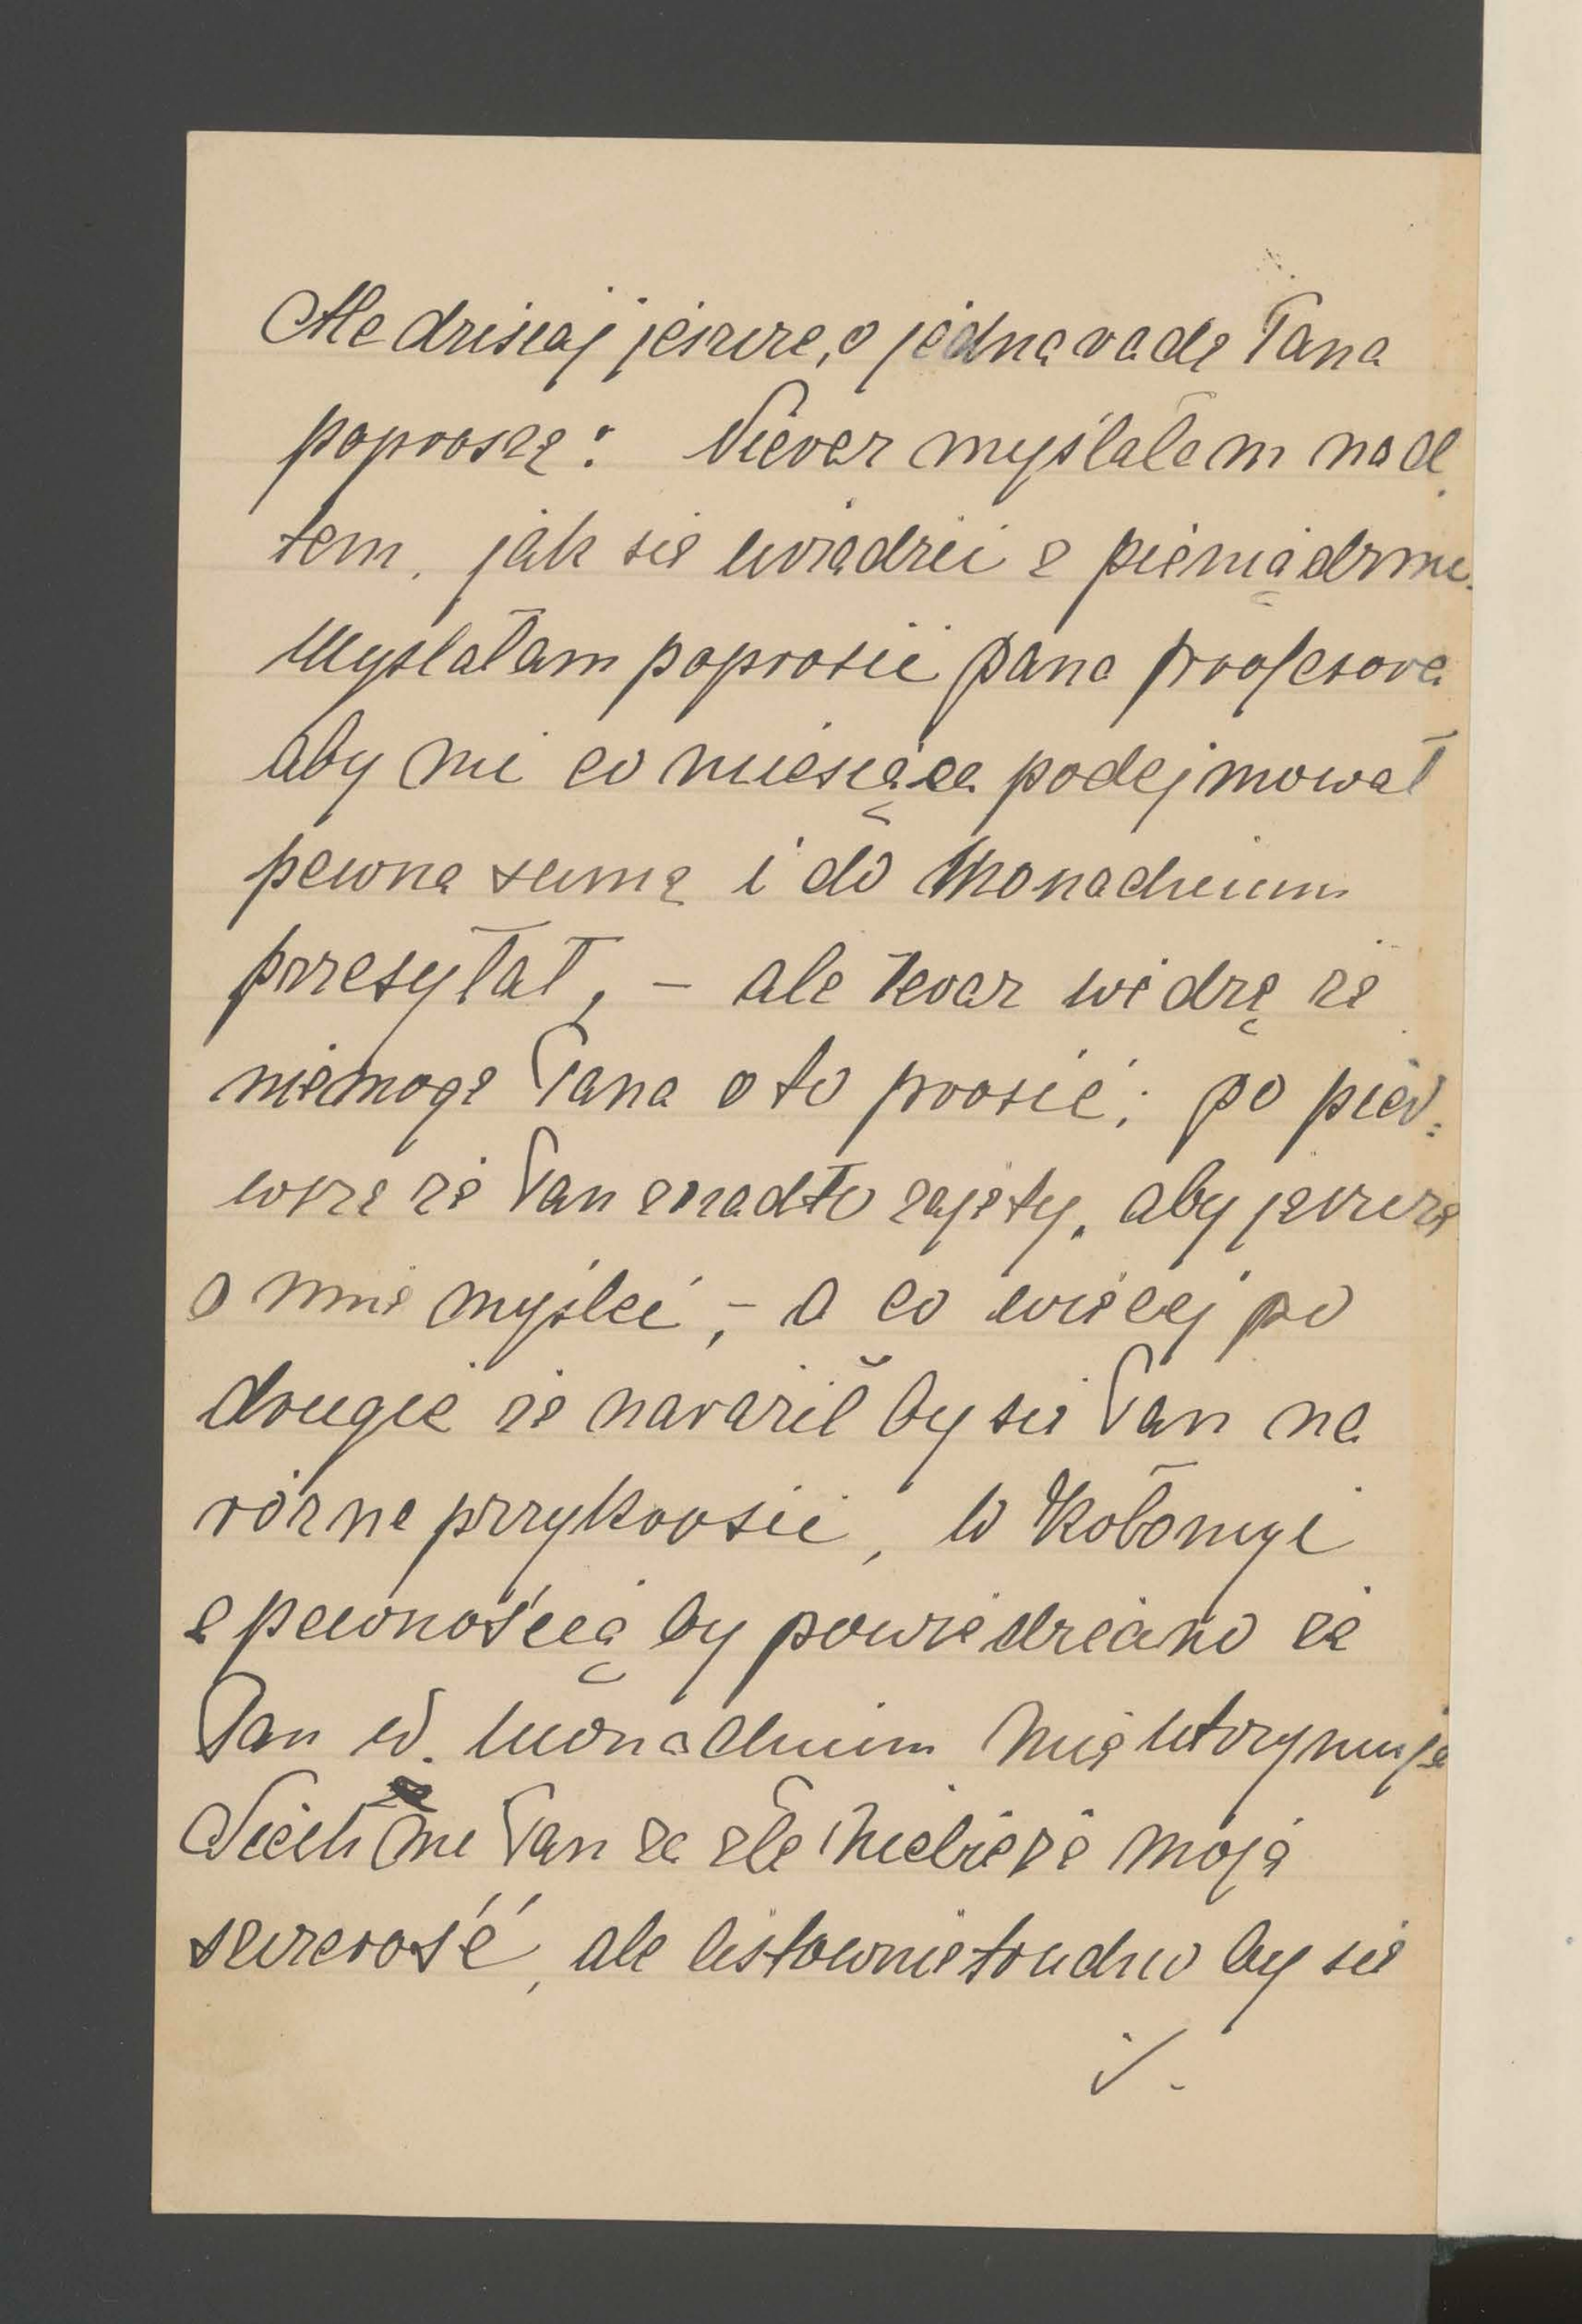 Ale dzisiaj jeszcze, o jedną radę Pana
poproszę: Nieraz myślałem nad
tem, jak się urządzić z pieniądzmi.
Myslałam poprosić pana profesora
aby mi co miesiąca podejmował
pewną sumę i do Monachium
przesyłał, – ale teraz widzę że
niemogę Pana o to prosić; po pier=
wsze że Pan znadto zajęty, aby jeszcze
o mnie myśleć, – a co więcej po
drugie że naraził by się Pan na
różne przykrosci, w Kołomyi
z pewnością by powiedziano że
Pan w. Monachium mię utrzymuje
Niech mi Pan za złe niebierze moją
szczerość, ale listownie trudno by się
./.